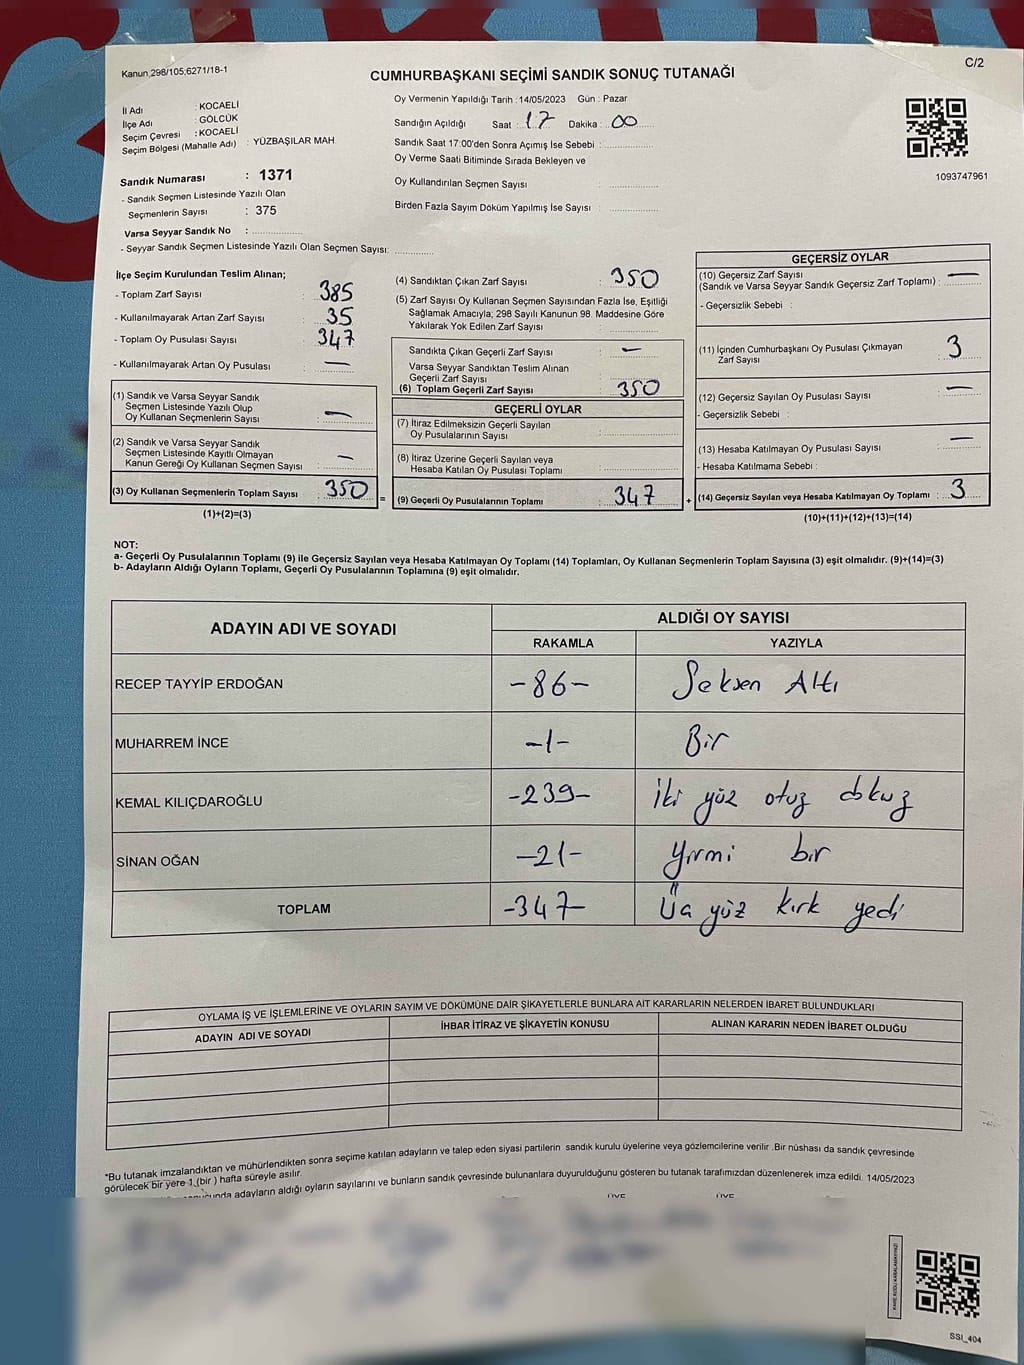 C/2
Kanun 298/105;6271/18-1
CUMHURBAŞKANI SEÇİMİ SANDIK SONUÇ TUTANAĞI
İl Adı : KOCAELİ
İlçe Adı : GÖLCÜK
Seçim Çevresi : KOCAELİ
Seçim Bölgesi (Mahalle Adı) : YÜZBAŞILAR MAH
Sandık Numarası : 1371
- Sandık Seçmen Listesinde Yazılı Olan
Seçmenlerin Sayısı : 375
Varsa Seyyar Sandık No :
- Seyyar Sandık Seçmen Listesinde Yazılı Olan Seçmen Sayısı:
Oy Vermenin Yapıldığı Tarih : 14/05/2023 Gün : Pazar
Sandığın Açıldığı Saat : 17 Dakika : 00
Sandık Saat 17:00'den Sonra Açımış İse Sebebi :
Oy Verme Saati Bitiminde Sırada Bekleyen ve
Oy Kullandırılan Seçmen Sayısı :
Birden Fazla Sayım Döküm Yapılmış İse Sayısı :
1093747961
İlçe Seçim Kurulundan Teslim Alınan;
- Toplam Zarf Sayısı : 385
- Kullanılmayarak Artan Zarf Sayısı : 35
- Toplam Oy Pusulası Sayısı : 347
- Kullanılmayarak Artan Oy Pusulası : —
(1) Sandık ve Varsa Seyyar Sandık
Seçmen Listesinde Yazılı Olup
Oy Kullanan Seçmenlerin Sayısı : —
(2) Sandık ve Varsa Seyyar Sandık
Seçmen Listesinde Kayıtlı Olmayan
Kanun Gereği Oy Kullanan Seçmen Sayısı : —
(3) Oy Kullanan Seçmenlerin Toplam Sayısı : 350
(1)+(2)=(3)
=
(4) Sandıktan Çıkan Zarf Sayısı : 350
(5) Zarf Sayısı Oy Kullanan Seçmen Sayısından Fazla İse, Eşitliği
Sağlamak Amacıyla; 298 Sayılı Kanunun 98. Maddesine Göre
Yakılarak Yok Edilen Zarf Sayısı :
Sandıkta Çıkan Geçerli Zarf Sayısı : —
Varsa Seyyar Sandıktan Teslim Alınan
Geçerli Zarf Sayısı :
(6) Toplam Geçerli Zarf Sayısı : 350
GEÇERLİ OYLAR
(7) İtiraz Edilmeksizin Geçerli Sayılan
Oy Pusulalarının Sayısı :
(8) İtiraz Üzerine Geçerli Sayılan veya
Hesaba Katılan Oy Pusulası Toplamı :
(9) Geçerli Oy Pusulalarının Toplamı : 347
+
GEÇERSİZ OYLAR
(10) Geçersiz Zarf Sayısı
(Sandık ve Varsa Seyyar Sandık Geçersiz Zarf Toplamı) : —
- Geçersizlik Sebebi :
(11) İçinden Cumhurbaşkanı Oy Pusulası Çıkmayan
Zarf Sayısı : 3
(12) Geçersiz Sayılan Oy Pusulası Sayısı : —
- Geçersizlik Sebebi :
(13) Hesaba Katılmayan Oy Pusulası Sayısı : —
- Hesaba Katılmama Sebebi :
(14) Geçersiz Sayılan veya Hesaba Katılmayan Oy Toplamı : 3
(10)+(11)+(12)+(13)=(14)
NOT:
a- Geçerli Oy Pusulalarının Toplamı (9) ile Geçersiz Sayılan veya Hesaba Katılmayan Oy Toplamı (14) Toplamları, Oy Kullanan Seçmenlerin Toplam Sayısına (3) eşit olmalıdır. (9)+(14)=(3)
b- Adayların Aldığı Oyların Toplamı, Geçerli Oy Pusulalarının Toplamına (9) eşit olmalıdır.
ADAYIN ADI VE SOYADI ALDIĞI OY SAYISI
RAKAMLA YAZIYLA
RECEP TAYYİP ERDOĞAN -86- Seksen Altı
MUHARREM İNCE -1- Bir
KEMAL KILIÇDAROĞLU -239- İki yüz otuz dokuz
SİNAN OĞAN -21- Yirmi bir
TOPLAM -347- Üç yüz kırk yedi
OYLAMA İŞ VE İŞLEMLERİNE VE OYLARIN SAYIM VE DÖKÜMÜNE DAİR ŞİKAYETLERLE BUNLARA AİT KARARLARIN NELERDEN İBARET BULUNDUKLARI
ADAYIN ADI VE SOYADI İHBAR İTİRAZ VE ŞİKAYETİN KONUSU ALINAN KARARIN NEDEN İBARET OLDUĞU
*Bu tutanak imzalandıktan ve mühürlendikten sonra seçime katılan adayların ve talep eden siyasi partilerin sandık kurulu üyelerine veya gözlemcilerine verilir .Bir nüshası da sandık çevresinde
görülecek bir yere 1 (bir ) hafta süreyle asılır.
adayların aldığı oyların sayılarını ve bunların sandık çevresinde bulunanlara duyurulduğunu gösteren bu tutanak tarafımızdan düzenlenerek imza edildi. 14/05/2023
ÜYE ÜYE
SSI_404